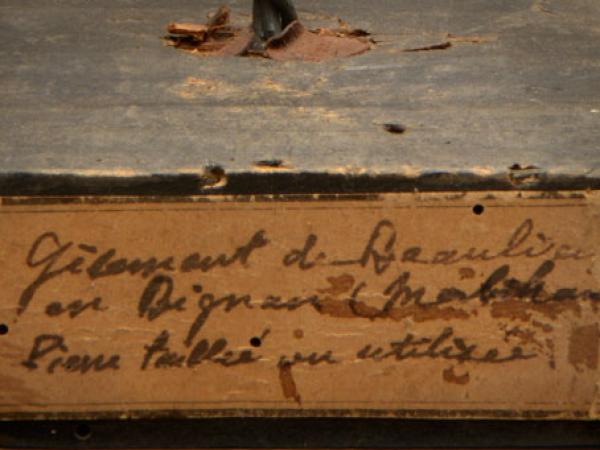 Gisement de Beaulieu
en Bignan (Morbihan
Pierre taillée ou utilisée